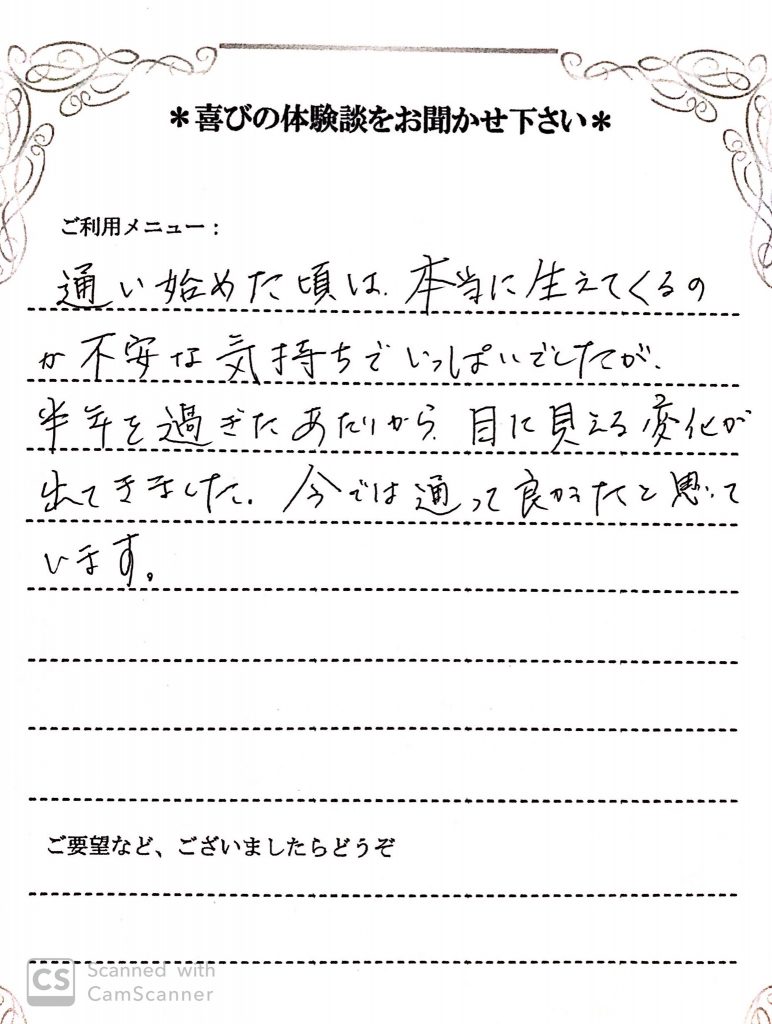 ＊喜びの体験談をお聞かせ下さい＊
ご利用メニュー：
通い始めた頃は、本当に生えてくるの
か不安な気持ちでいっぱいでしたが、
半年を過ぎたあたりから、目に見える変化が
出てきました。今では通って良かったと思って
います。
ご要望など、ございましたらどうぞ
CS Scanned with
CamScanner